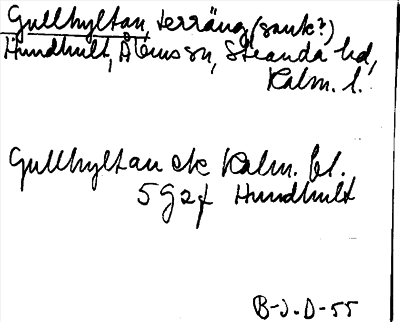 Gullhyltan, terräng (sank?)
Hundhult, Älmsson, Stranda hd,
Kalm. l.
Gullhyltan ek Kalm. bl.
5 G 2 f Hundhult
B-J. D-55